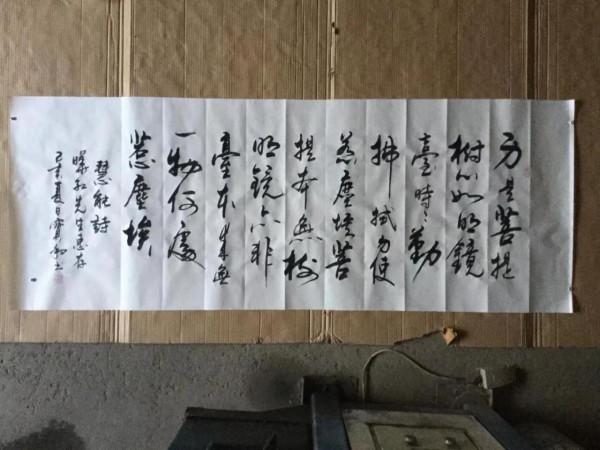 身是菩提
樹心如明鏡
臺時々勤
拂拭勿使
惹塵埃菩
提本無樹
明鏡亦非
臺本來無
一物何處
惹塵埃
慧能詩
先生惠存
己亥夏日